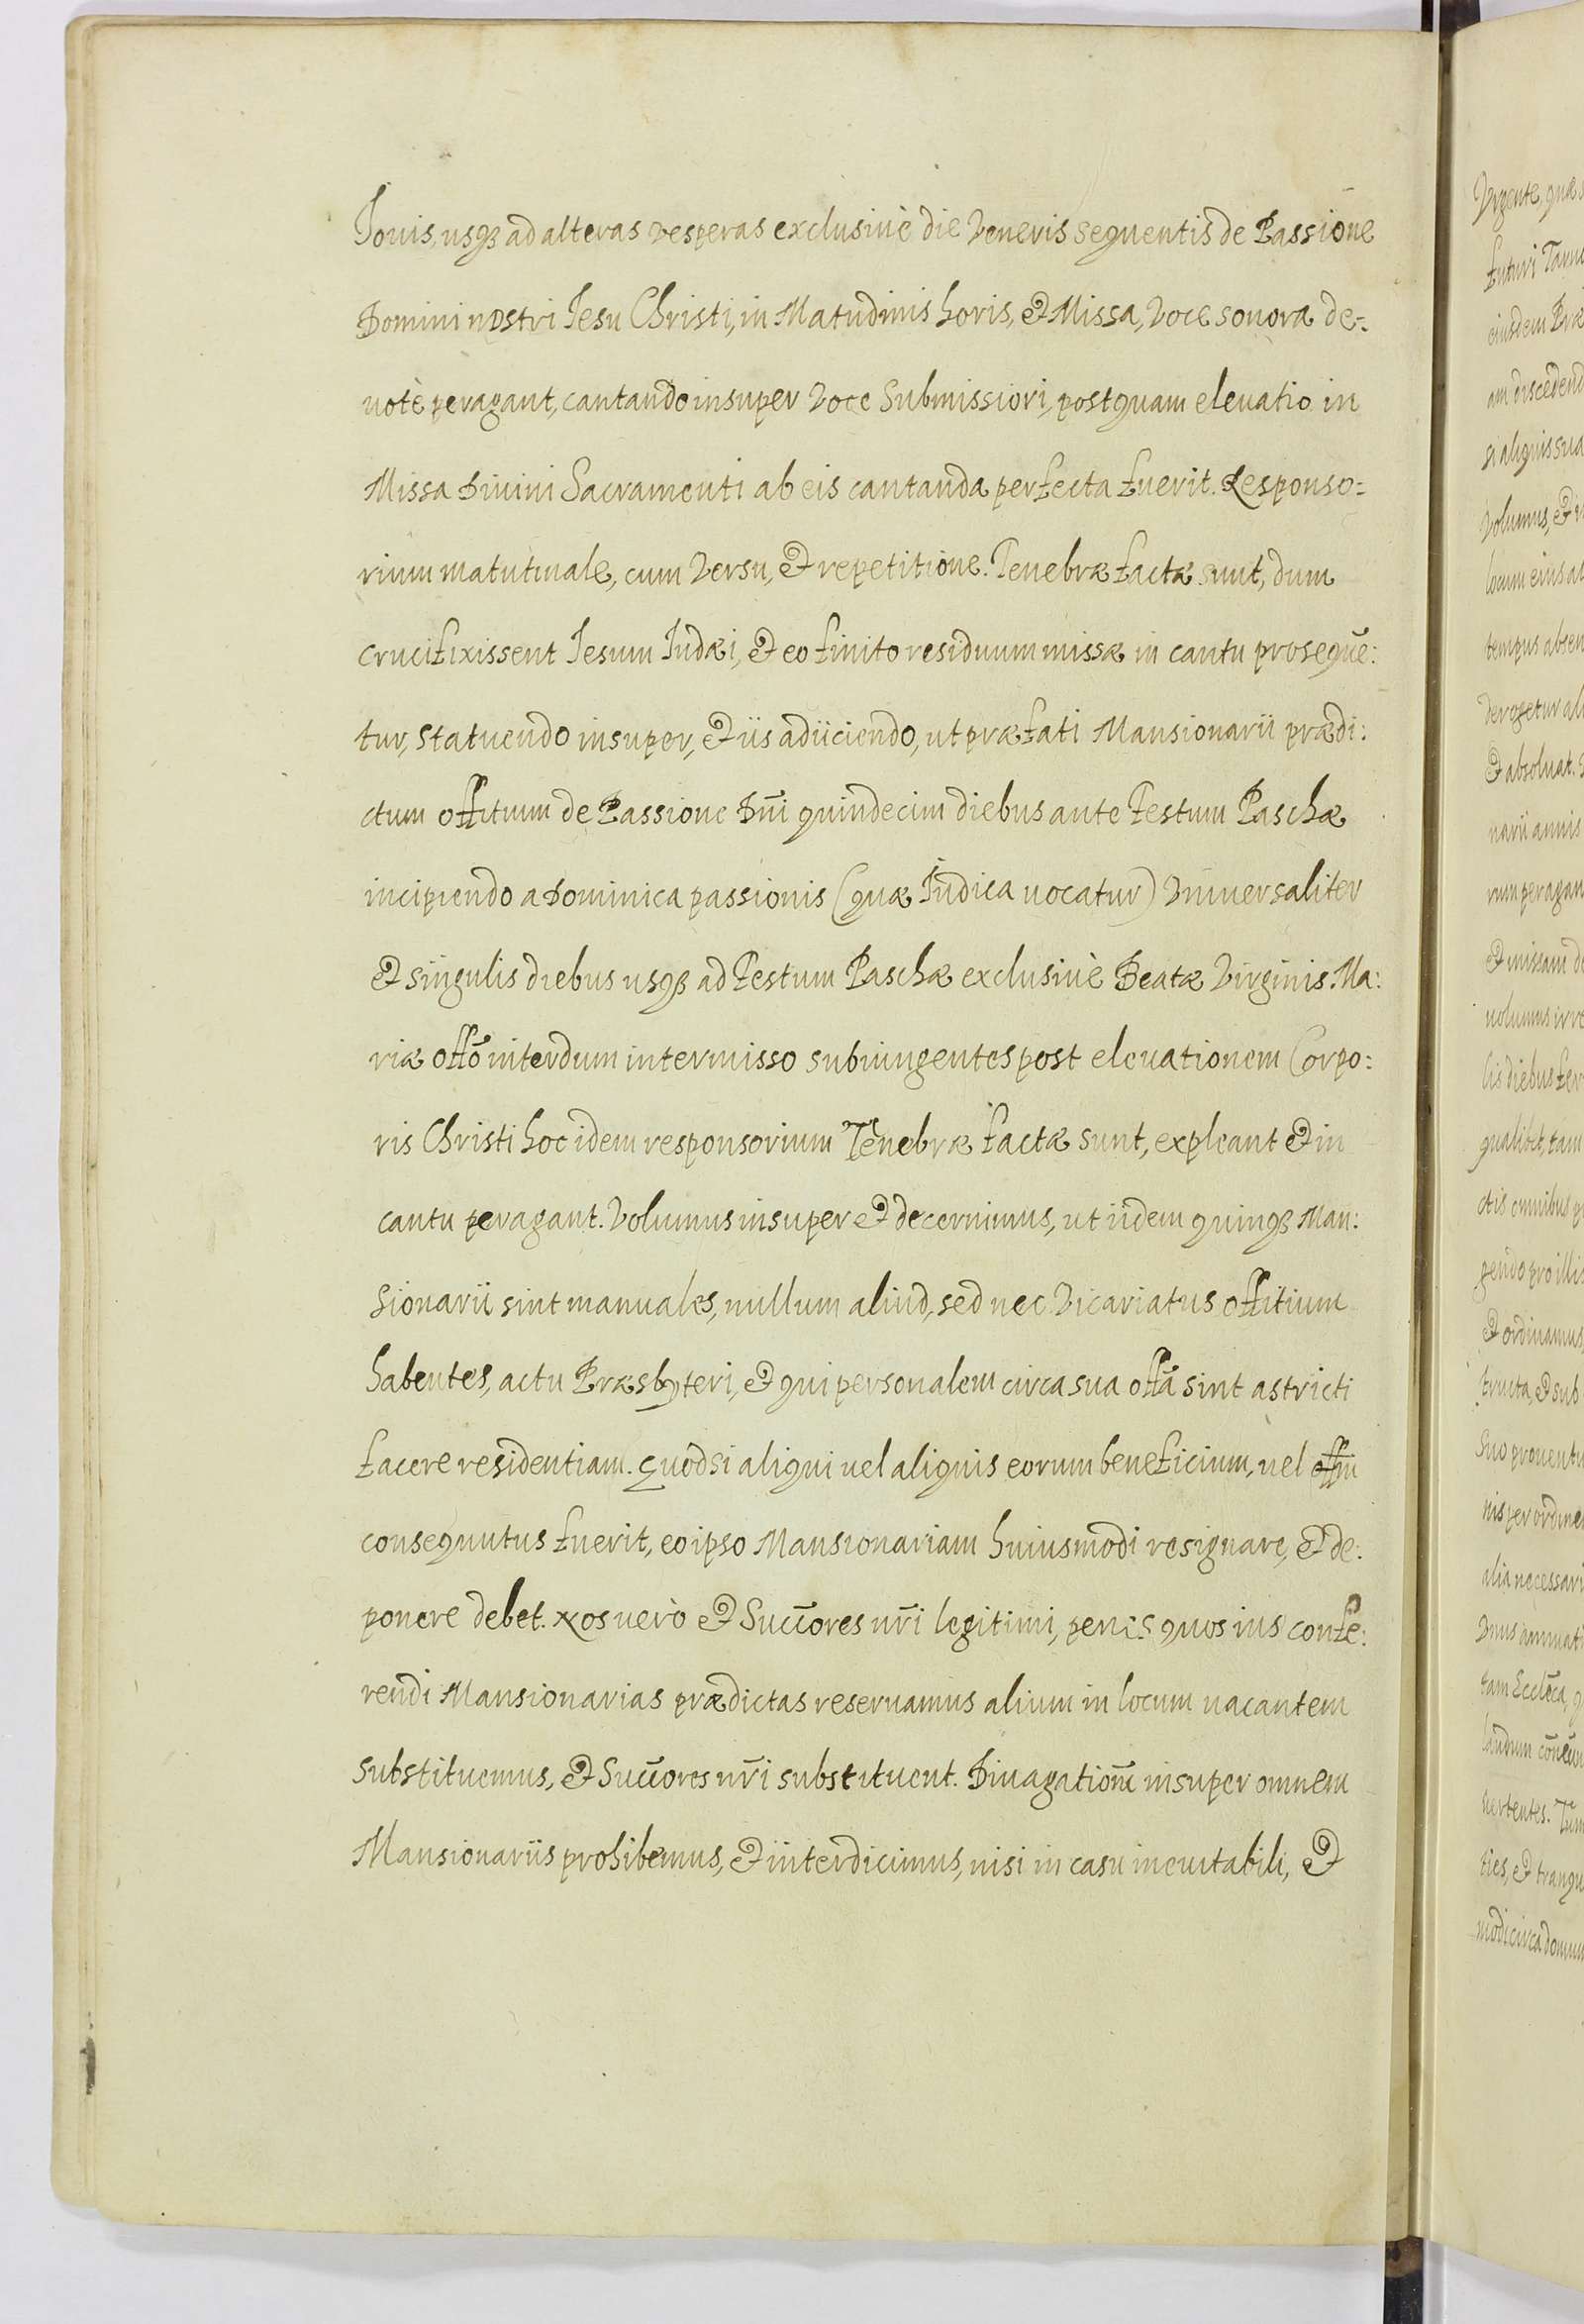 Iouis, usqꝫ ad alteras vesperas exclusiuè die Veneris sequentis de Passione
Domini nostri Iesu Christi, in Matudinis horis, & Missa, Voce sonora de-
uotè peragant, cantando insuper Voce Submissiori, postquam eleuatio in
Missa Diuini Sacramenti ab eis cantanda perfecta fuerit. Responso:
rium matutinale, cum Versu, & repetitione. Tenebræ factæ sunt, dum
crucifixissent Iesum Iudæi, & eo finito residuum missæ in cantu prosequē:
tur, statuendo insuper, & iis adiiciendo, ut præfati Mansionarii prædi:
ctum offitium de Passione Dn̄i quindecim diebus ante Festum Paschæ
incipiendo a Dominica passionis (quæ Iudica uocatur) Vniuersaliter
& singulis diebus usqꝫ ad Festum Paschæ exclusiuè Beatæ Virginis Ma:
riæ offō interdum intermisso subiungentes post eleuationem Corpo:
ris Christi hoc idem responsorium Tenebræ factæ sunt, expleant & in
cantu peragant. Volumus insuper & decernimus, ut iidem quinqꝫ Man:
sionarii sint manuales, nullum aliud, sed nec Vicariatus offitium
habentes, actu Præsbyteri, & qui personalem circa sua offā sint astricti
facere residentiam. Quodsi aliqui uel aliquis eorum beneficium, uel offm̄
consequutus fuerit, eo ipso Mansionariam huiusmodi resignare, & de:
ponere debet. Nos uerò & Succōres nr̄i legitimi, penes quos ius confe:
rendi Mansionarias prædictas reseruamus alium in locum uacantem
substituemus, & Succōres nr̄i substituent. Diuagationē insuper omnem
Mansionariis prohibemus, & interdicimus, nisi in casu ineuitabili, &